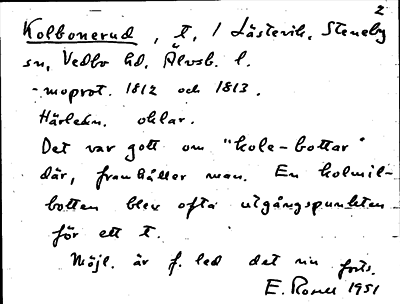 2
Kolbonerud, t, / Lästerik, Steneby
sn, Vedbo hd, Älvsb. l.
- moprot. 1812 och 1813.
Härledn. oklar.
Det var gott om "kole-bottar"
där, framhåller man. En kolmil-
botten blev ofta utgångspunkten
för ett t.
Möjl. är f. led det nu forts.
E. Rosell 1951